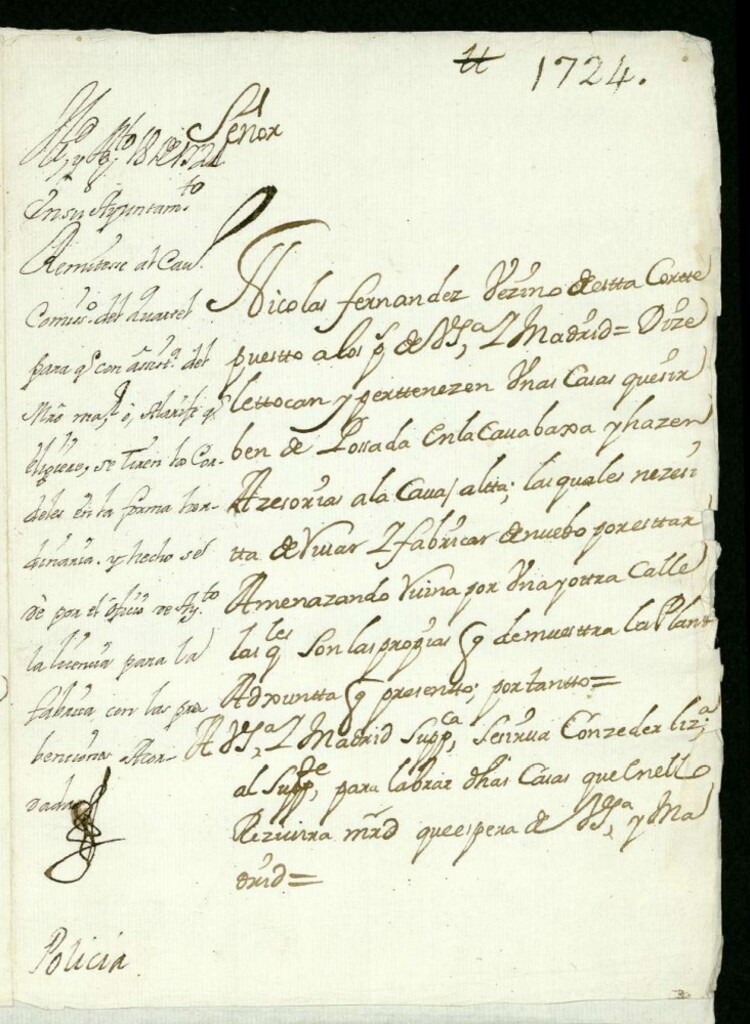 tt 1724.
Señor
M.d y Ag.to 18 de 1724
En su Ayuntam.to
Remitese al Cav.
Comiss.o del quartel
para q.e con asist.a del
Mro mas.r o, Alarife q.e
eligiere, se tiren los Cor-
deles en la forma hor-
dinaria. y hecho se
dè por el oficio de Ay.to
la licencia para la
fabrica con las pre
benciones Acor-
dadas
Nicolas fernandez Vezino de estta Cortte
puestto a los p.s de V.S.a I Madrid= Dize
lettocan y perttenezen Vnas Casas que sir
ben de Possada En la Cava baxa y hazen
Azesorias a la Cava altta; las quales nezesi
tta de Viuar I fabricar de nuebo por esttar
Amenazando Ruina por Vna y ottra Calle
las q.les son las propias q demuesttra la Plant
Adxuntta q presentto; por tantto=
A V.S.a I Madrid Supp.ca, se sirva Conzeder liz.a
al Supp.te, para labrar dhas Casas que En ello
Rezivira mrd que espera de V.S.a y Ma
drid=
Policia